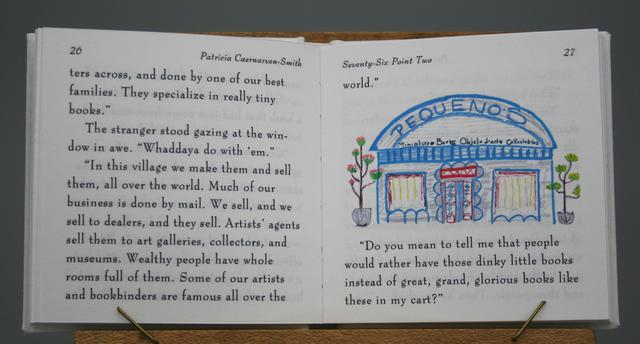 26
Patricia Caernarven-Smith
ters across, and done by one of our best
families. They specialize in really tiny
books."
The stranger stood gazing at the win-
dow in awe. "Whaddaya do with 'em."
"In this village we make them and sell
them, all over the world. Much of our
business is done by mail. We sell, and we
sell to dealers, and they sell. Artists' agents
sell them to art galleries, collectors, and
museums. Wealthy people have whole
rooms full of them. Some of our artists
and bookbinders are famous all over the
Seventy-Six Point Two
27
world."
PEQUENO'S
Miniature Books Objets d'arts Collectables
"Do you mean to tell me that people
would rather have those dinky little books
instead of great, grand, glorious books like
these in my cart?"